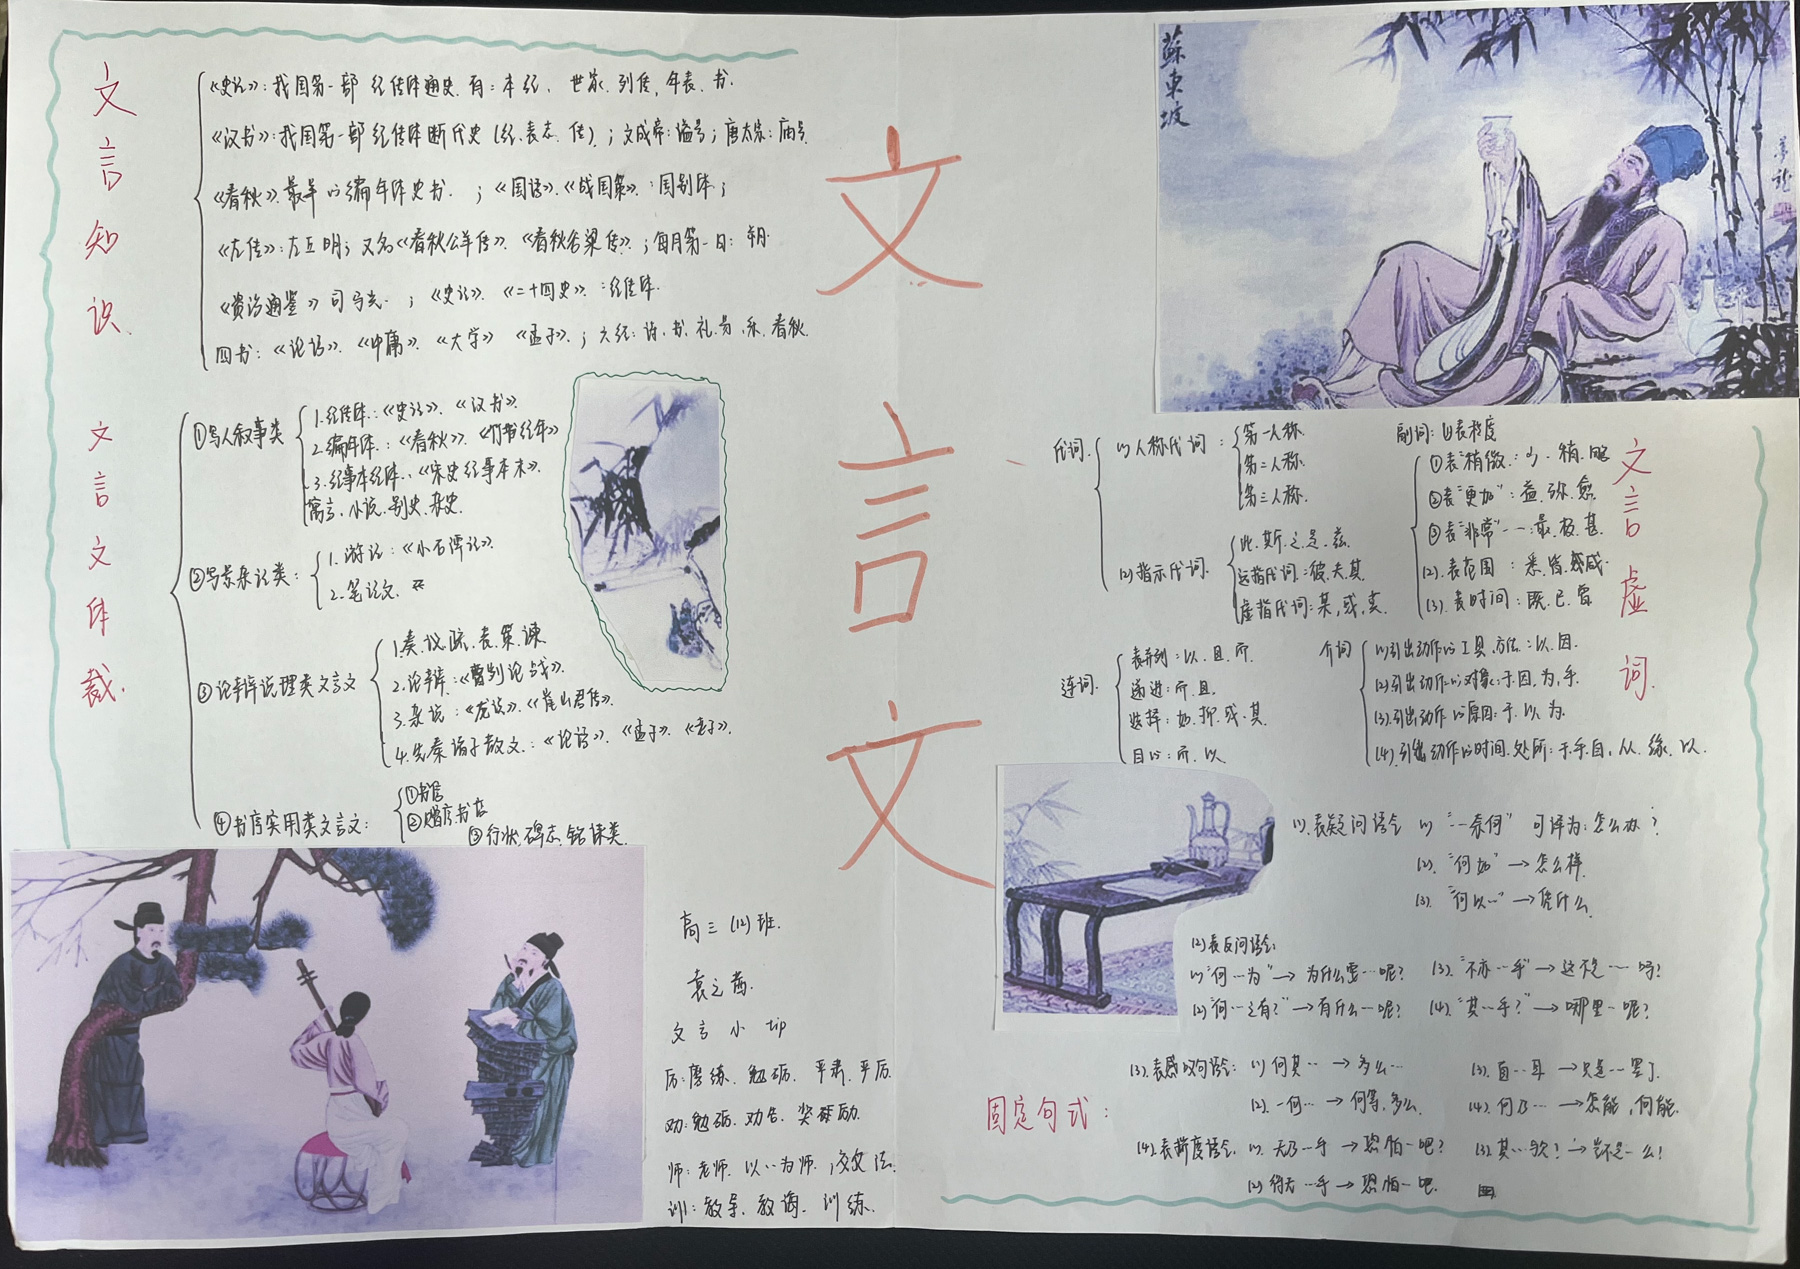 文言文
文言知识
《史记》:我国第一部纪传体通史.有:本纪、世家.列传,年表.书.
《汉书》:我国第一部纪传体断代史(纪.表志.传).;文成帝:谥号;唐太宗:庙号
《春秋》.最早的编年体史书.;《国语》.《战国策》:国别体;
《左传》:左丘明;又名《春秋公羊传》.《春秋谷梁传》.;每月第一日:朔
《资治通鉴》司马光.;《史记》.《二十四史》:纪传体.
四书:《论语》.《中庸》.《大学》《孟子》.;六经:诗.书.礼.易.乐.春秋.
文言文体裁.
①写人叙事类
1.纪传体:《史记》.《汉书》.
2.编年体:《春秋》.《竹书纪年》
3.纪事本纪体:《宋史纪事本末》.
寓言.小说.别史.杂史.
②写景杂记类:
1.游记:《小石潭记》.
2.笔记文.
③论辩说理类文言文
1.奏.议.疏.表.策.谏
2.论辩:《曹刿论战》.
3.杂说:《龙说》.《崔山君传》.
4.先秦诸子散文:《论语》.《孟子》.《老子》.
④书序实用类文言文:
①书信
②赠序书序
③行状.碑志.铭诔类.
高三(12)班.
袁之茜.
文言小tip
厉:磨练.勉砺.严肃.严厉.
劝:勉砺.劝告.奖励.
师:老师.以··为师.;效法.
训:教导.教诲.训练.
蘇東坡
文言虚词.
代词.
(1)人称代词:
第一人称.
第二人称.
第三人称.
(2)指示代词.
此.斯.之.是.兹.
远指代词:彼.夫.其.
虚指代词:某,或,
副词:(1)表程度
①表“稍微”:少.稍.略
②表“更加”:益.弥.愈.
③表“非常”:最.极.甚.
(2).表范围:悉.皆.咸.
(3).表时间:既.已.尝
连词.
表并列:以.且.而.
递进:而.且.
选择:如.抑.或.其.
目的:而.以
介词
(1)引出动作的工具.方法:以.因.
(2)引出动作的对象:于.因.为.乎.
(3).引出动作的原因:于.以.为.
(4).引出动作的时间.处所:于.乎.自.从.缘.以.
固定句式:
(1).表疑问语气 (1)“··奈何”可译为:怎么办?
(2).“何如”→怎么样.
(3).“何以··”→凭什么.
(2)表反问语气:
(1)“何··为”→为什么要··呢?
(3).“不亦··乎”→这不是···吗?
(2)“何··之有?”→有什么··呢?
(4).“其··乎?”→哪里··呢?
(3).表感叹句语气:(1)何其··→多么··
(3).直··耳→只是··罢了.
(2).一何··→何等,多么.
(4).何乃··→怎能,何能.
(4).表揣度语气.(1).无乃··乎→恐怕··吧?
(3).其··欤?→岂不是··么!
(2)得无··乎→恐怕··吧.